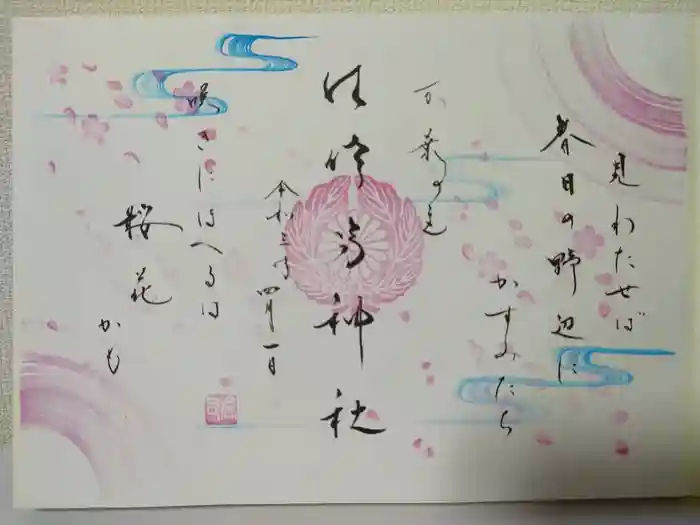 見わたせば
春日の野辺に
かすみたち
万葉の道
神社
令和三年 四月一日
咲きにほへるは
桜花
かも